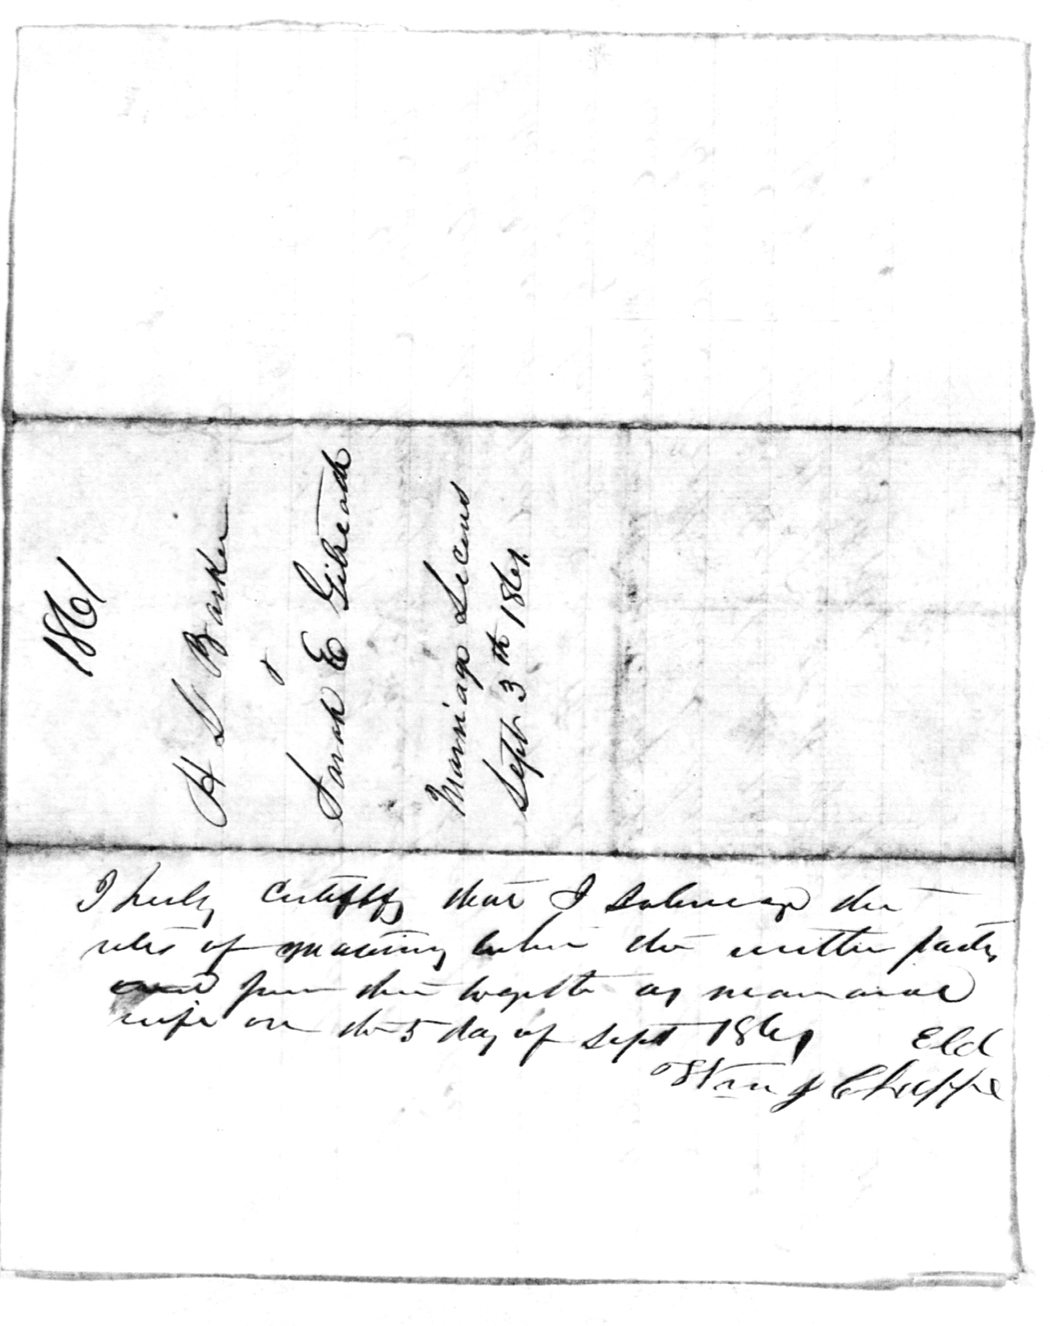 1861
H S Barker
&
Sarah E Gilreath
Marriage Licens
Sept 3th 1861
I herby certiffy that I solemnize the
rites of between the within parties
and joine them together as man and
wife on the 5 day of Sept 1861 Eld
Wm J